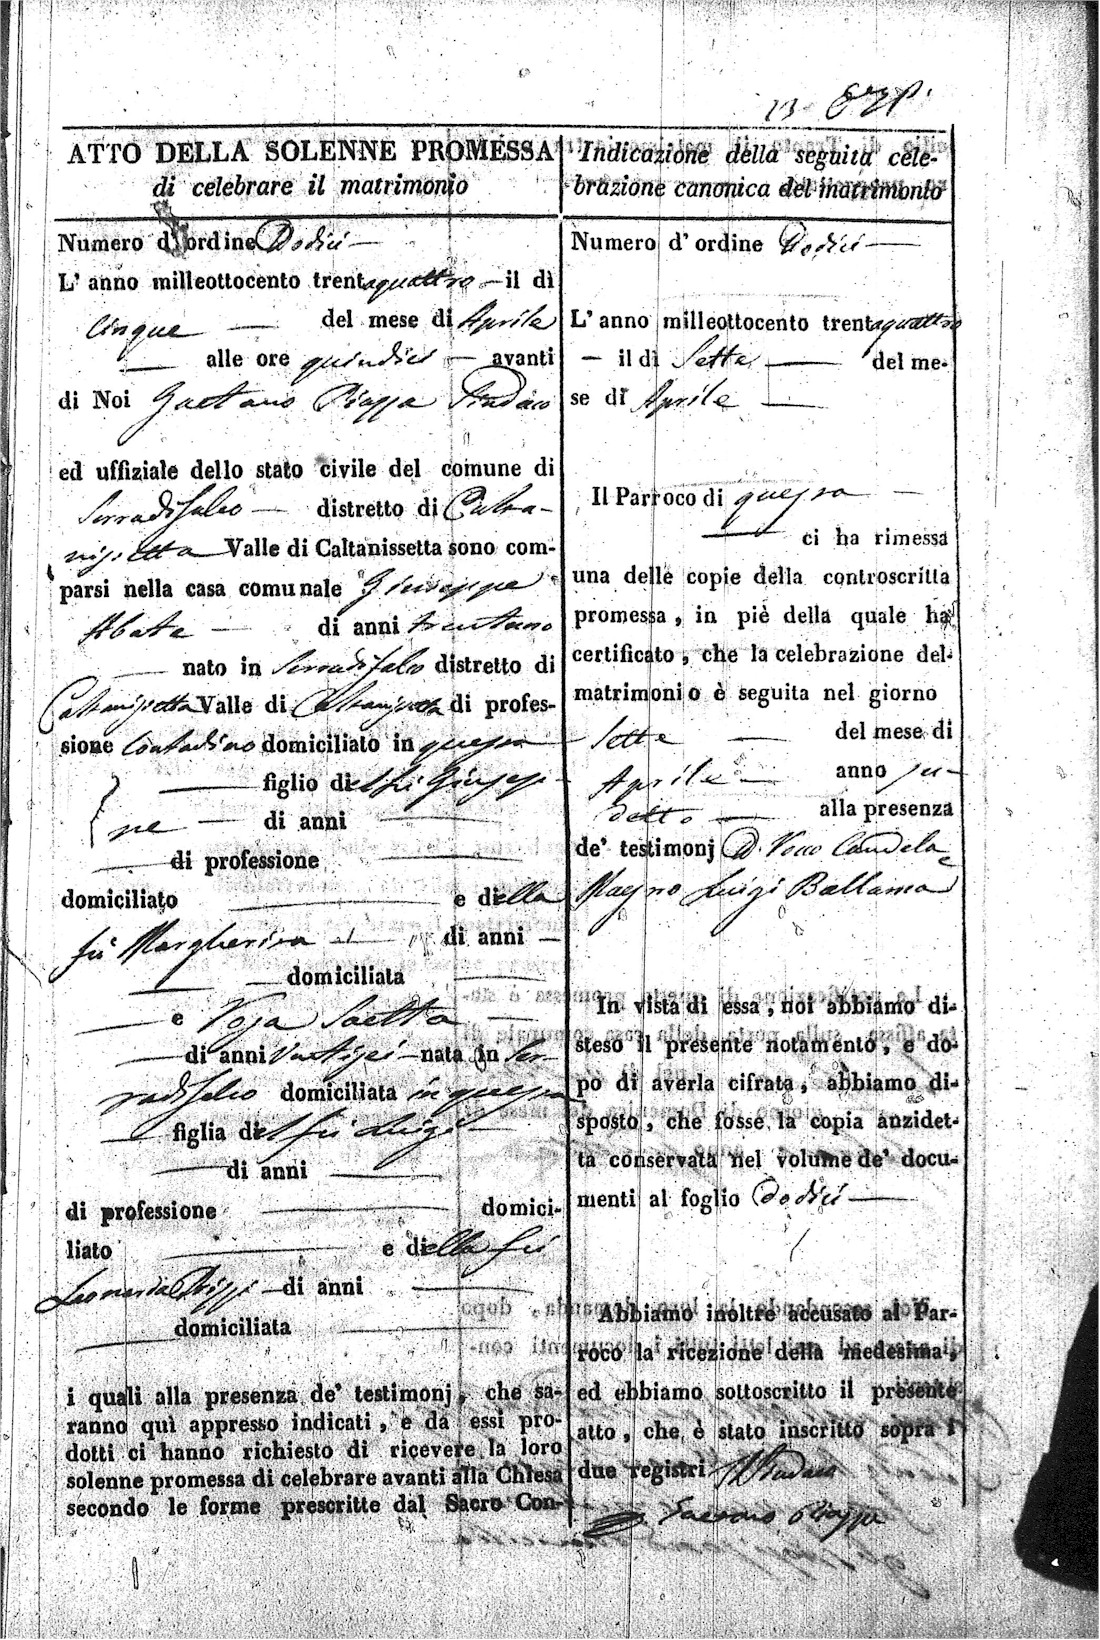 13
ATTO DELLA SOLENNE PROMESSA
di celebrare il matrimonio
Numero d'ordine Dodici
L'anno milleottocento trentaquattro il dì
Cinque del mese di Aprile
alle ore quindici avanti
di Noi Gaetano Piazza Sindaco
ed uffiziale dello stato civile del comune di
Serradifalco distretto di Calta-
nissetta Valle di Caltanissetta sono com-
parsi nella casa comunale Giuseppe
Abate di anni trentuno
nato in Serradifalco distretto di
Caltanissetta Valle di Caltanissetta di profes-
sione Contadino domiciliato in questa
figlio del fù Giusep-
pe di anni
di professione
domiciliato e della
fù Margherita di anni
domiciliata
e Rosa Saetta
di anni Ventisei nata in Ser-
radifalco domiciliata in questa
figlia del fù Luigi
di anni
di professione domici-
liato e della fù
Leonarda di anni
domiciliata
i quali alla presenza de' testimonj, che sa-
ranno quì appresso indicati, e da essi pro-
dotti ci hanno richiesto di ricevere la loro
solenne promessa di celebrare avanti alla Chiesa
secondo le forme prescritte dal Sacro Con-
Indicazione della seguita cele-
brazione canonica del matrimonio
Numero d'ordine Dodici
L'anno milleottocento trentaquattro
il dì Sette del me-
se di Aprile
Il Parroco di questa
ci ha rimessa
una delle copie della controscritta
promessa, in piè della quale ha
certificato, che la celebrazione del
matrimonio è seguita nel giorno
Sette del mese di
Aprile anno su-
detto alla presenza
de' testimonj D. Candela e
Magno Luigi
In vista di essa, noi abbiamo di-
steso il presente notamento, e do-
po di averla cifrata, abbiamo di-
sposto, che fosse la copia anzidet-
ta conservata nel volume de' docu-
menti al foglio Dodici
Abbiamo inoltre accusato al Par-
roco la ricezione della medesima,
ed ebbiamo sottoscritto il presente
atto, che è stato inscritto sopra i
due registri Il Sindaco
Gaetano Piazza